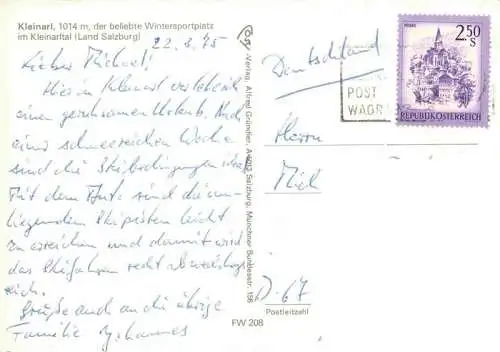 Kleinarl, 1014 m, der beliebte Wintersportplatz
im Kleinarltal (Land Salzburg)
22.3.75
Lieber Michael!
Hier in Kleinarl verlebe ich
einen geruhsamen Urlaub. Nach
einer schneereichen Woche
sind die Skibedingungen ideal.
Mit dem Auto sind die um-
liegenden Skipisten leicht
zu erreichen und damit wird
das Skifahren recht abwechslungs
reich.
Grüße auch an die übrige
Familie Johannes
Verlag Alfred Gründler, A-5013 Salzburg, Münchner Bundesstr. 156
FW 208
Deutschland
POST
WAGR
2.50
S
REPUBLIK ÖSTERREICH
Herrn
Mich
D-67
Postleitzahl